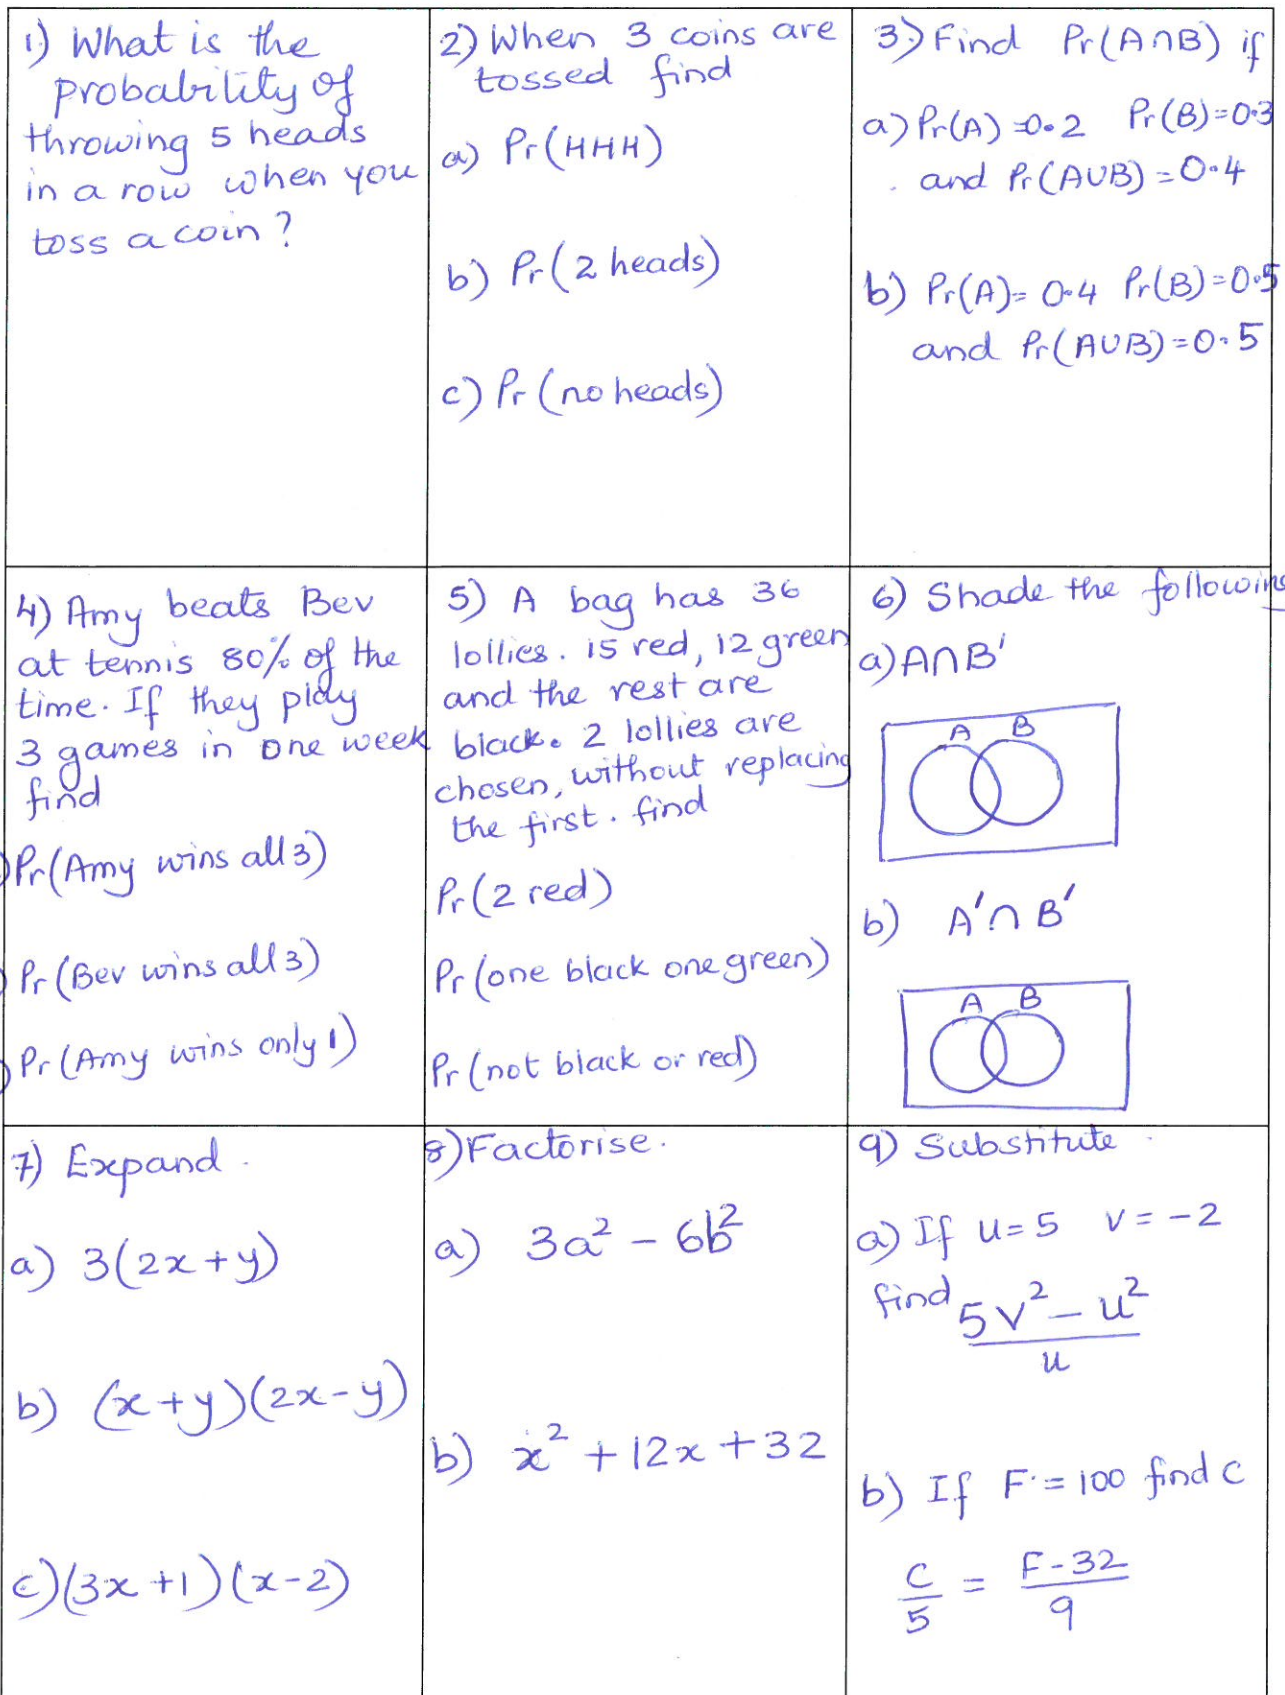 1) What is the
probability of
throwing 5 heads
in a row when you
toss a coin?
2) When 3 coins are
tossed find
a) Pr(HHH)
b) Pr(2 heads)
c) Pr(no heads)
3) Find Pr(A∩B) if
a) Pr(A)=0.2 Pr(B)=0.3
and Pr(A∪B)=0.4
b) Pr(A)=0.4 Pr(B)=0.5
and Pr(A∪B)=0.5
4) Amy beats Bev
at tennis 80% of the
time. If they play
3 games in one week
find
)Pr(Amy wins all 3)
)Pr(Bev wins all 3)
)Pr(Amy wins only 1)
5) A bag has 36
lollies. 15 red, 12 green
and the rest are
black. 2 lollies are
chosen, without replacing
the first. find
Pr(2 red)
Pr(one black one green)
Pr(not black or red)
6) Shade the following
a) A∩B'
A B
b) A'∩B'
A B
7) Expand.
a) 3(2x+y)
b) (x+y)(2x-y)
c)(3x+1)(x-2)
8)Factorise.
a) 3a² - 6b²
b) x² + 12x + 32
9) Substitute.
a) If u=5 v=-2
find 5v² - u²
u
b) If F=100 find C
C/5 = F-32/9